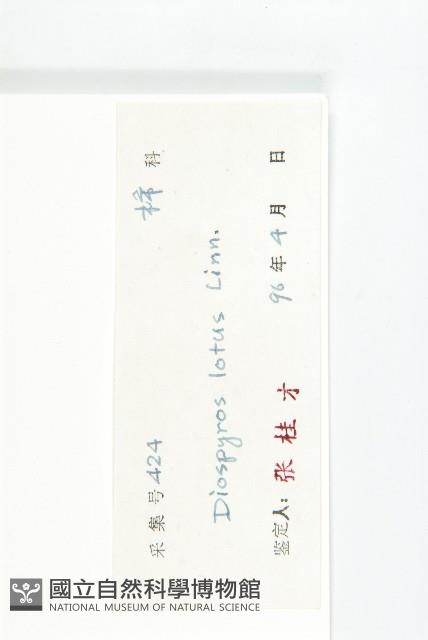 采集号 424 柿 科
Diospyros lotus Linn.
鉴定人: 张桂才 96年4月 日
國立自然科學博物館
NATIONAL MUSEUM OF NATURAL SCIENCE